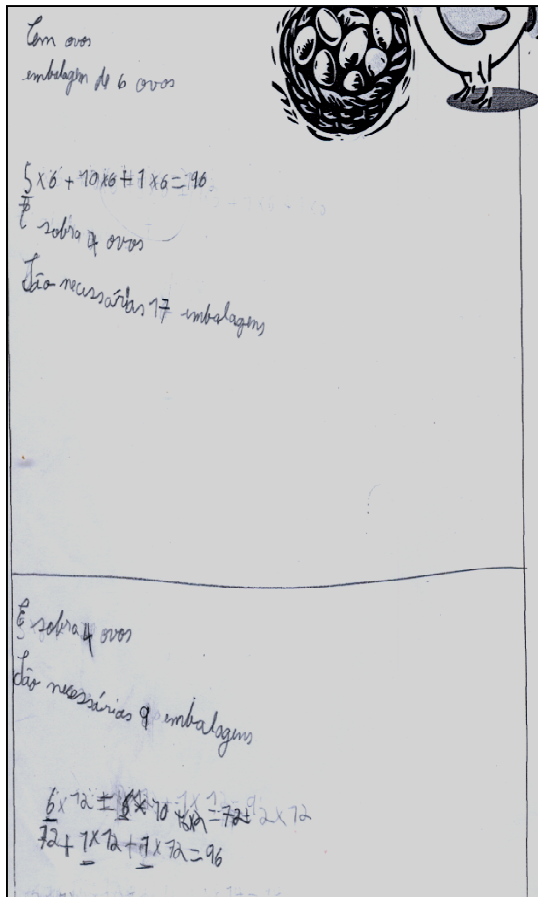 Cem ovos
embalagem de 6 ovos
5 x 6 + 10 x 6 + 1 x 6 = 96
E sobra 4 ovos
São necessárias 17 embalagens
E sobra 4 ovos
São necessárias 9 embalagens
6 x 12 = 6 x 10
72 + 1 x 12 + 1 x 12 = 96